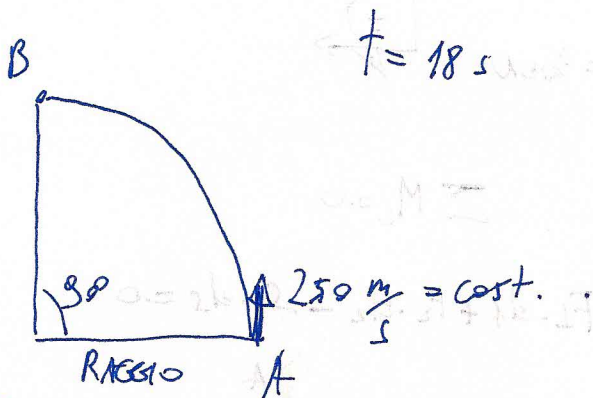 t = 18 s
B
90
250 m/s = cost.
RAGGIO
A